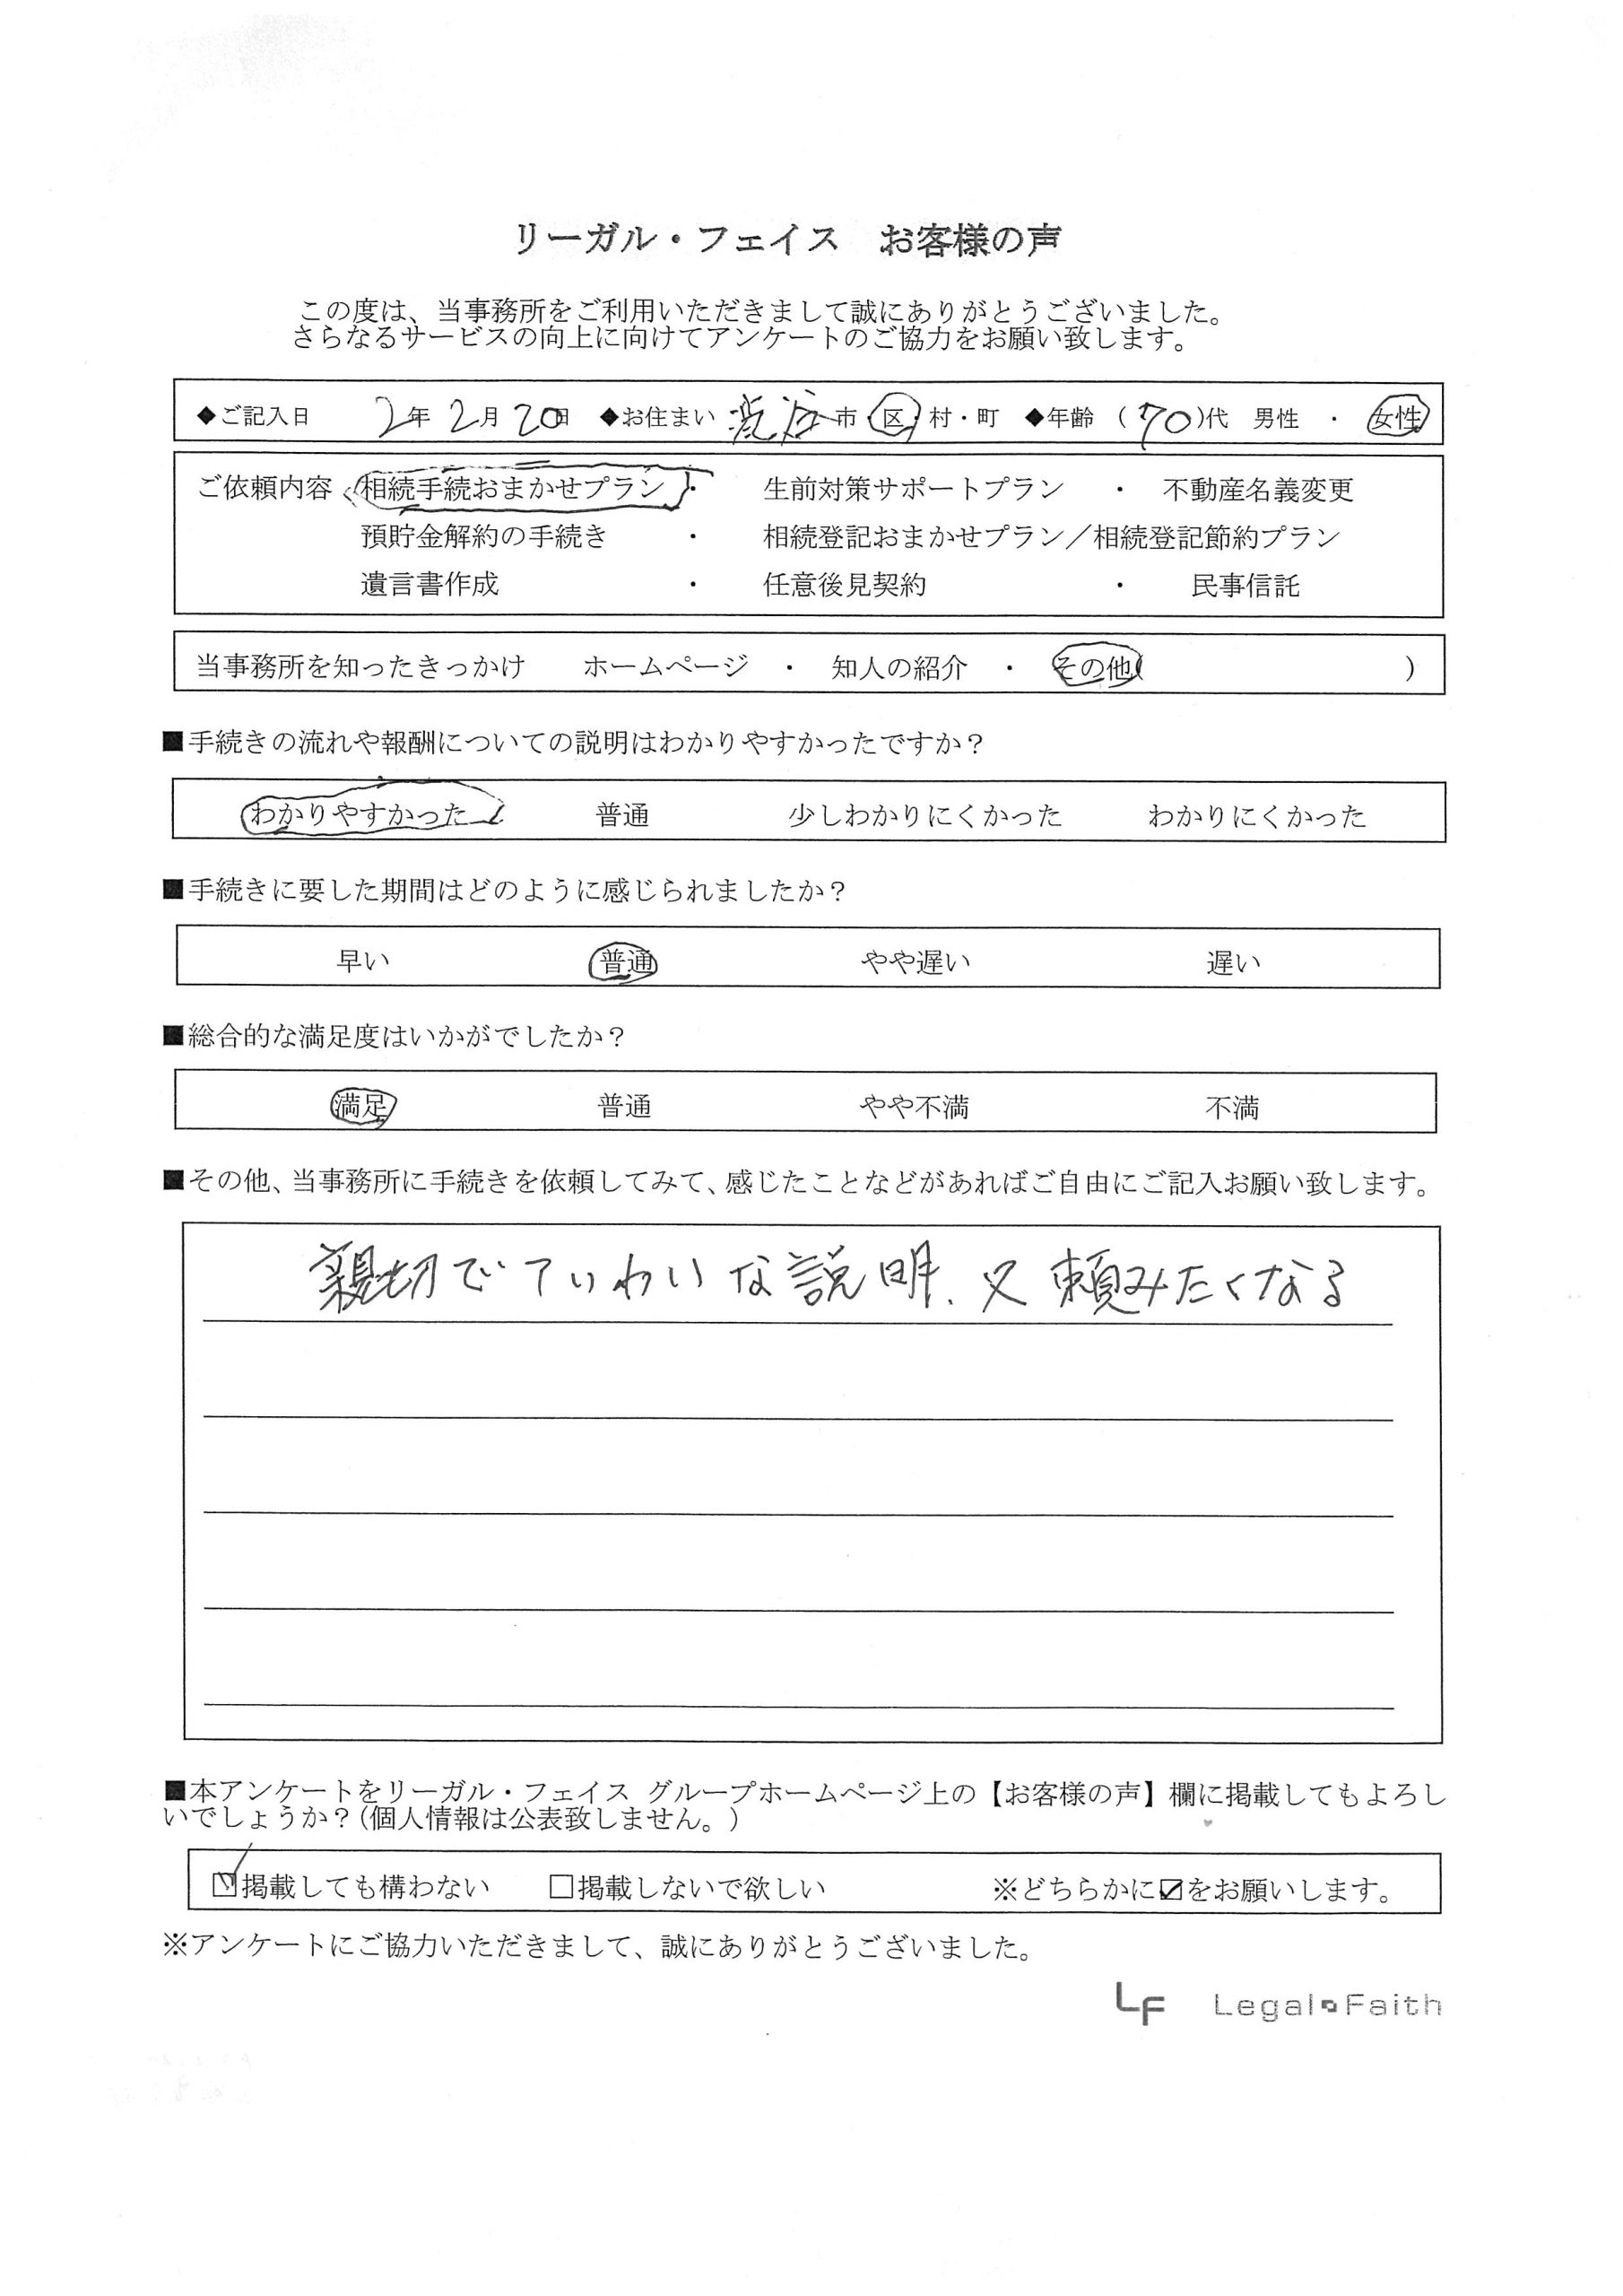 リーガル・フェイス　お客様の声
この度は、当事務所をご利用いただきまして誠にありがとうございました。
さらなるサービスの向上に向けてアンケートのご協力をお願い致します。
◆ご記入日　2年 2月 20日　◆お住まい 渋谷 市 区 村・町　◆年齢 (70)代　男性　・　女性
ご依頼内容　相続手続おまかせプラン　・　生前対策サポートプラン　・　不動産名義変更
預貯金解約の手続き　・　相続登記おまかせプラン／相続登記節約プラン
遺言書作成　・　任意後見契約　・　民事信託
当事務所を知ったきっかけ　ホームページ　・　知人の紹介　・　その他(　)
■手続きの流れや報酬についての説明はわかりやすかったですか？
わかりやすかった　普通　少しわかりにくかった　わかりにくかった
■手続きに要した期間はどのように感じられましたか？
早い　普通　やや遅い　遅い
■総合的な満足度はいかがでしたか？
満足　普通　やや不満　不満
■その他、当事務所に手続きを依頼してみて、感じたことなどがあればご自由にご記入お願い致します。
親切でていわいな説明、又頼みたくなる
■本アンケートをリーガル・フェイス グループホームページ上の【お客様の声】欄に掲載してもよろし
いでしょうか？(個人情報は公表致しません。)
☑掲載しても構わない　□掲載しないで欲しい　※どちらかに☑をお願いします。
※アンケートにご協力いただきまして、誠にありがとうございました。
LF Legal Faith